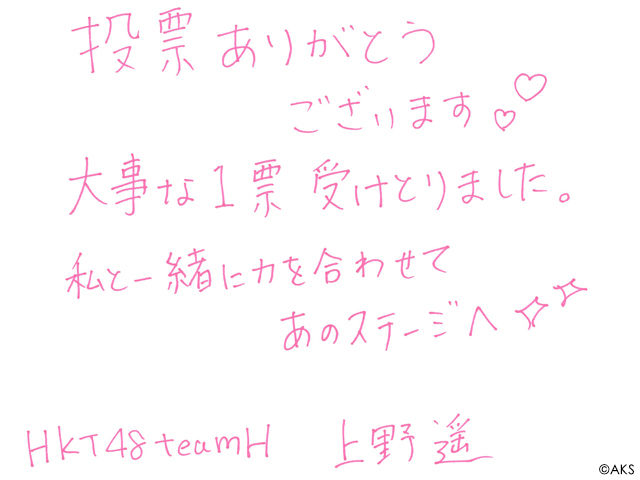 投票ありがとう
ございます♡♡
大事な1票 受けとりました。
私と一緒に力を合わせて
あのステージへ
HKT48 teamH 上野遥
©AKS